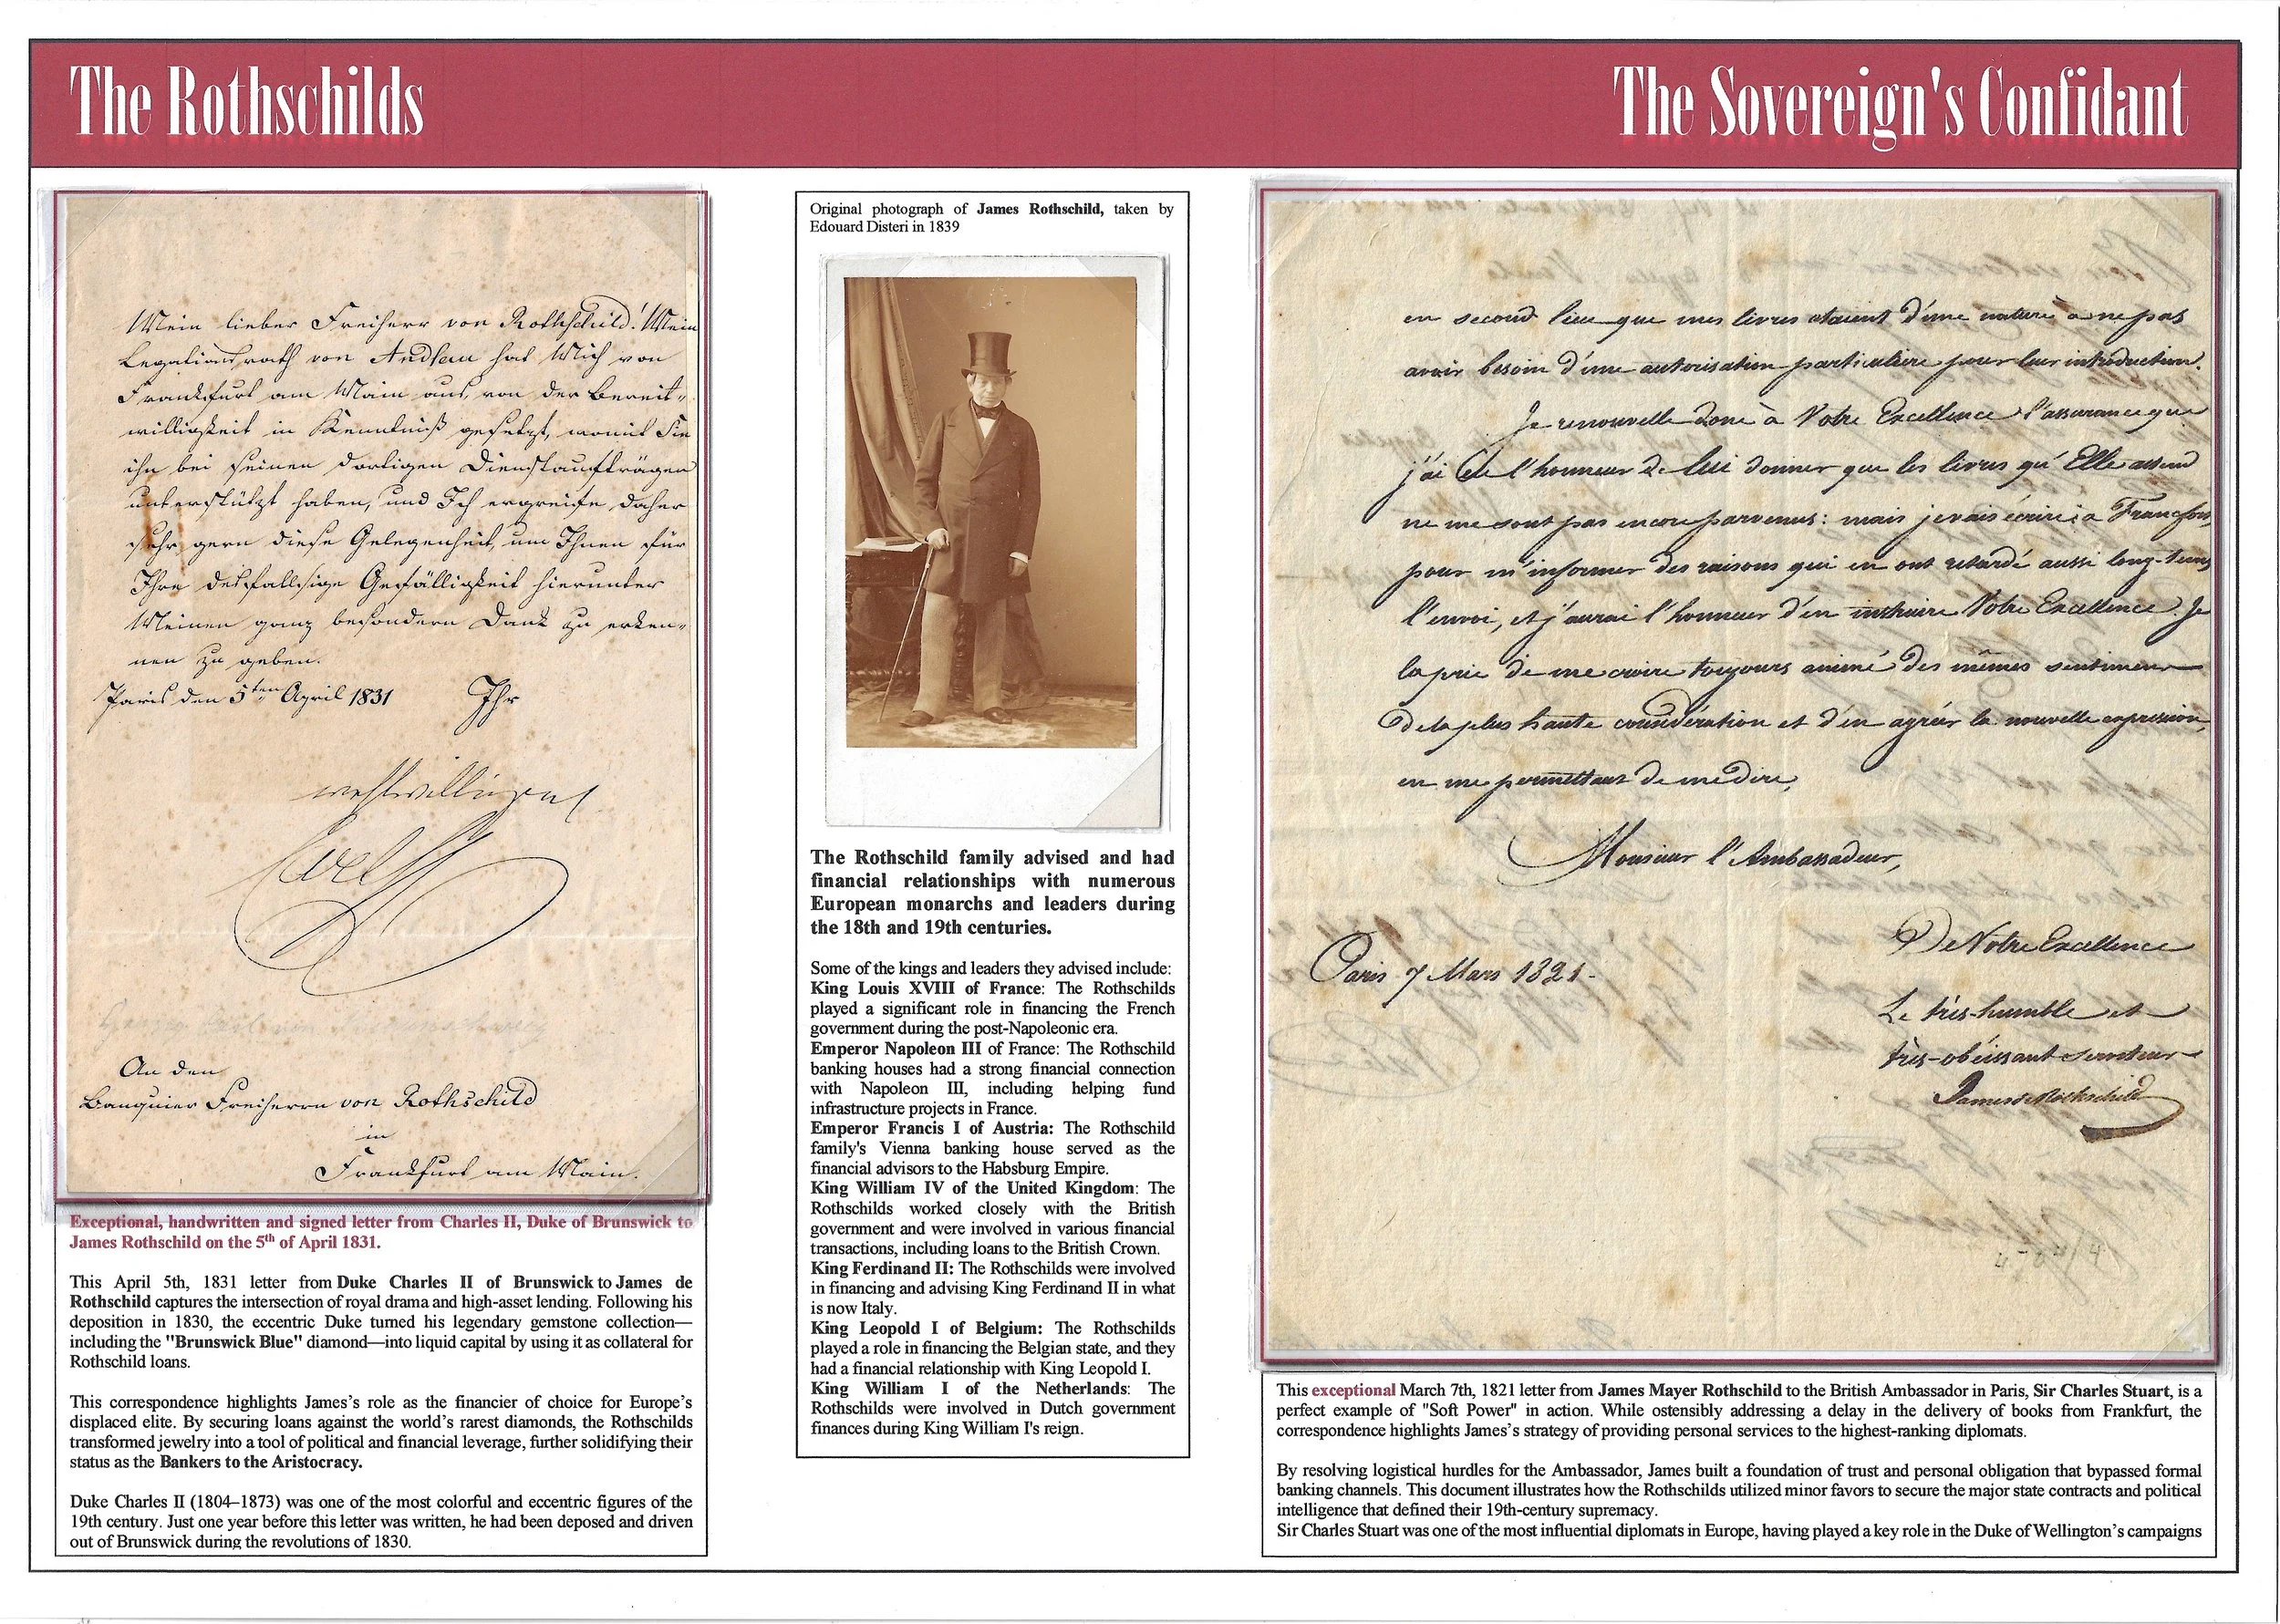 The Rothschilds
The Sovereign's Confidant
Mein lieber Freiherr von Rothschild! Mein
Legationsrath von Andlau hat Mich von
Frankfurt am Main aus, von der Bereit-
willigkeit in Kenntniß gesetzt, womit Sie
ihn bei seinen dortigen Dienstaufträgen
unterstützt haben, und Ich ergreife daher
sehr gern diese Gelegenheit, um Ihnen für
Ihre desfallsige Gefälligkeit hierunter
Meinen ganz besondern Dank zu erken-
nen zu geben.
Paris den 5ten April 1831 Ihr
wohlwillingens
Carl
An den
Banquier Freiherrn von Rothschild
in
Frankfurt am Main.
Exceptional, handwritten and signed letter from Charles II, Duke of Brunswick to
James Rothschild on the 5th of April 1831.
This April 5th, 1831 letter from Duke Charles II of Brunswick to James de
Rothschild captures the intersection of royal drama and high-asset lending. Following his
deposition in 1830, the eccentric Duke turned his legendary gemstone collection—
including the "Brunswick Blue" diamond—into liquid capital by using it as collateral for
Rothschild loans.
This correspondence highlights James's role as the financier of choice for Europe's
displaced elite. By securing loans against the world's rarest diamonds, the Rothschilds
transformed jewelry into a tool of political and financial leverage, further solidifying their
status as the Bankers to the Aristocracy.
Duke Charles II (1804–1873) was one of the most colorful and eccentric figures of the
19th century. Just one year before this letter was written, he had been deposed and driven
out of Brunswick during the revolutions of 1830.
Original photograph of James Rothschild, taken by
Edouard Disteri in 1839
The Rothschild family advised and had
financial relationships with numerous
European monarchs and leaders during
the 18th and 19th centuries.
Some of the kings and leaders they advised include:
King Louis XVIII of France: The Rothschilds
played a significant role in financing the French
government during the post-Napoleonic era.
Emperor Napoleon III of France: The Rothschild
banking houses had a strong financial connection
with Napoleon III, including helping fund
infrastructure projects in France.
Emperor Francis I of Austria: The Rothschild
family's Vienna banking house served as the
financial advisors to the Habsburg Empire.
King William IV of the United Kingdom: The
Rothschilds worked closely with the British
government and were involved in various financial
transactions, including loans to the British Crown.
King Ferdinand II: The Rothschilds were involved
in financing and advising King Ferdinand II in what
is now Italy.
King Leopold I of Belgium: The Rothschilds
played a role in financing the Belgian state, and they
had a financial relationship with King Leopold I.
King William I of the Netherlands: The
Rothschilds were involved in Dutch government
finances during King William I's reign.
en second lieu que mes livres etaient d'une nature à ne pas
avoir besoin d'une autorisation particulière pour leur introduction.
Je renouvelle donc à Votre Excellence l'assurance que
j'ai eu l'honneur de lui donner que les livres qu'Elle attend
ne me sont pas encore parvenus: mais je vais écrire à Francfort
pour m'informer des raisons qui en ont retardé aussi long-tems
l'envoi, et j'aurai l'honneur d'en instruire Votre Excellence. Je
la prie de me croire toujours animé des mêmes sentimens
de la plus haute considération et d'en agréer la nouvelle expression,
en me permettant de me dire,
Monsieur l'Ambassadeur,
De Votre Excellence
Paris 7 Mars 1821.
Le très-humble et
très-obéissant serviteur
James de Rothschild
This exceptional March 7th, 1821 letter from James Mayer Rothschild to the British Ambassador in Paris, Sir Charles Stuart, is a
perfect example of "Soft Power" in action. While ostensibly addressing a delay in the delivery of books from Frankfurt, the
correspondence highlights James's strategy of providing personal services to the highest-ranking diplomats.
By resolving logistical hurdles for the Ambassador, James built a foundation of trust and personal obligation that bypassed formal
banking channels. This document illustrates how the Rothschilds utilized minor favors to secure the major state contracts and political
intelligence that defined their 19th-century supremacy.
Sir Charles Stuart was one of the most influential diplomats in Europe, having played a key role in the Duke of Wellington's campaigns